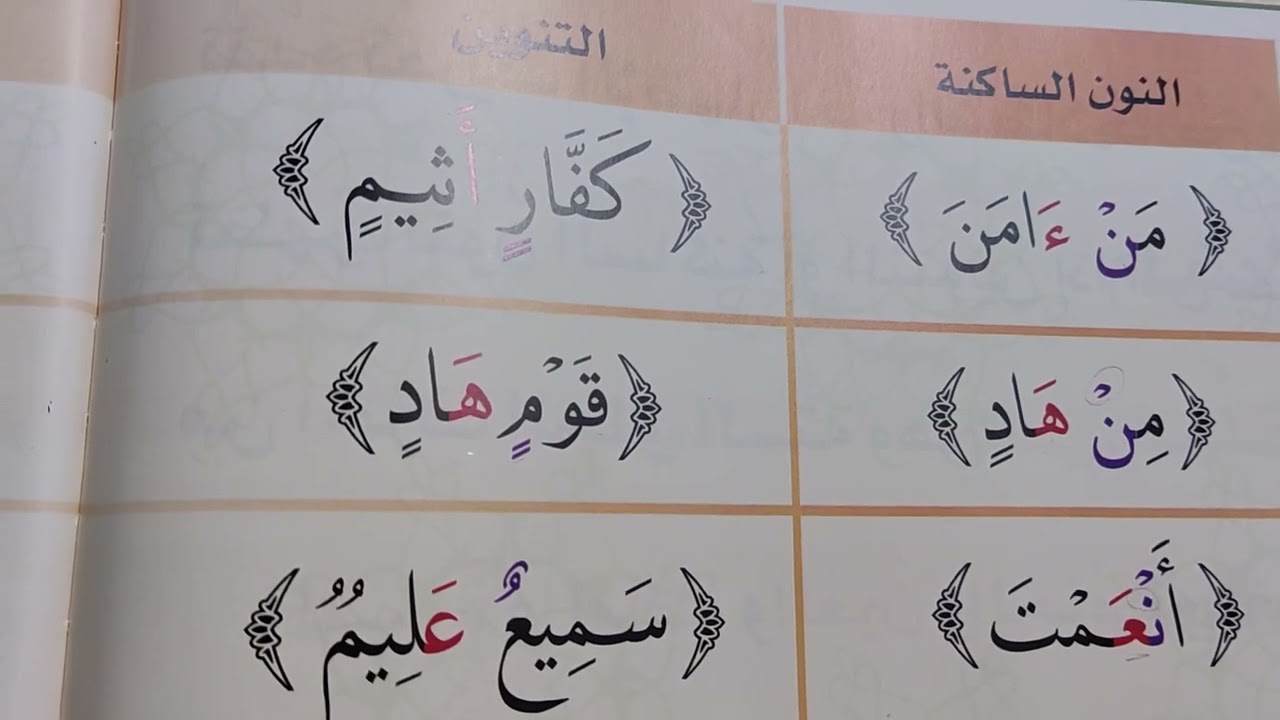 النون الساكنة التنوين
﴿ مَنْ ءَامَنَ ﴾ ﴿ كَفَّارٍ أَثِيمٍ ﴾
﴿ مِنْ هَادٍ ﴾ ﴿ قَوْمٍ هَادٍ ﴾
﴿ أَنْعَمْتَ ﴾ ﴿ سَمِيعٌ عَلِيمٌ ﴾